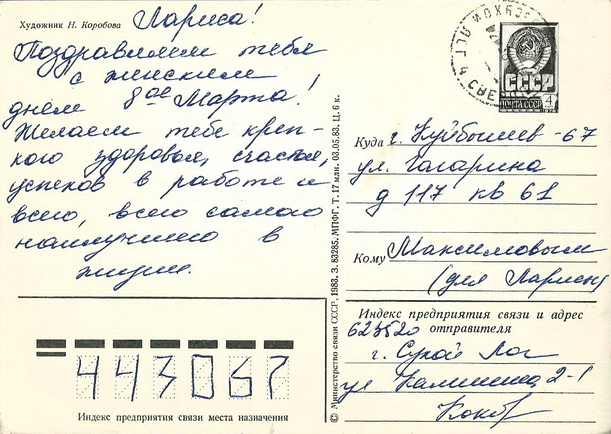 Художник Н. Коробова
Лариса!
Поздравляем тебя
с женским
днём 8ое Марта!
Желаем тебе креп-
кого здоровья, счастья,
успехов в работе и
всего, всего самого
наилучшего в
жизни.
СССР
ПОЧТА СССР
4
Куда г. Куйбышев -67
ул. Гагарина
д 117 кв 61
Кому Максимовым
(для Ларисы)
Индекс предприятия связи и адрес
отправителя
623520
г. Сухой Лог
ул Калинина 2-1
443067
Индекс предприятия связи места назначения
© Министерство связи СССР, 1983, З. 83285, МПФГ, Т. 17 млн. 03.05.83, Ц. 6 к.